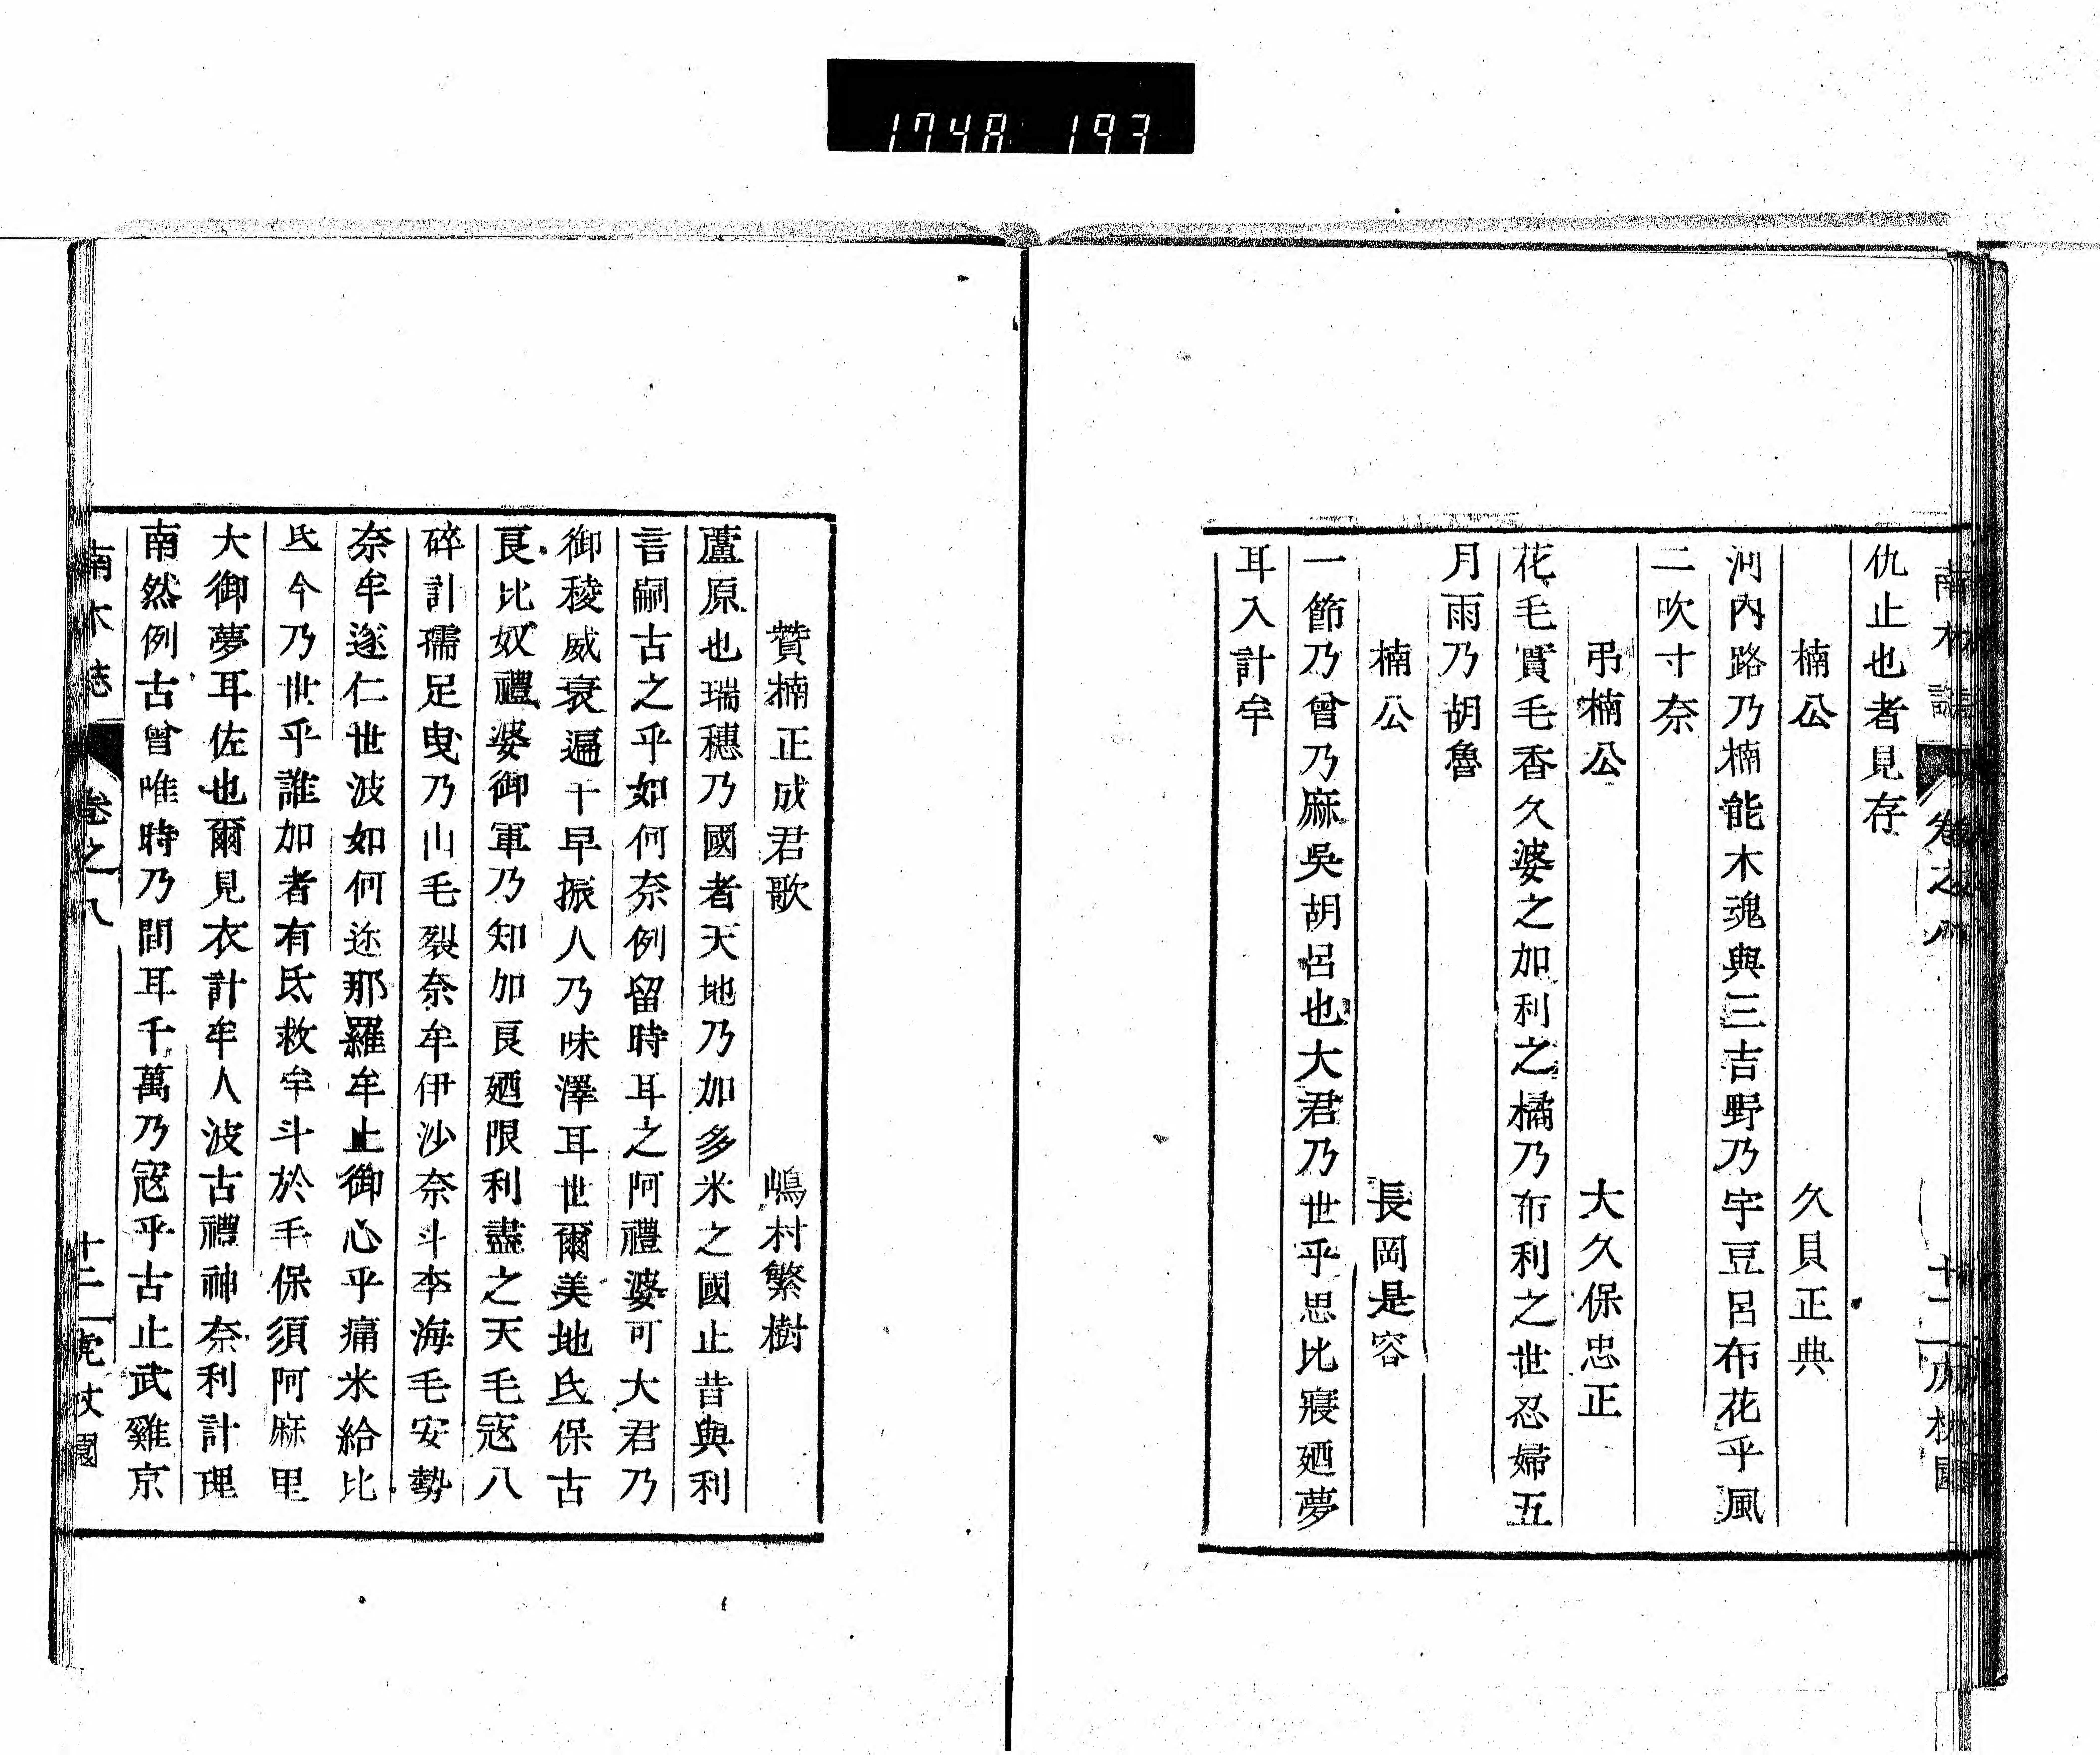 1748 193
仇止也者見存
楠公 久貝正典
河内路乃楠能木魂與三吉野乃宇豆呂布花乎風
二吹寸奈
弔楠公 大久保忠正
花毛實毛香久婆之加利之橘乃布利之世忍婦五
月雨乃胡魯
楠公 長岡是容
一節乃曾乃麻吳胡呂也大君乃世乎思比寢廼夢
耳入計牟
贊楠正成君歌 嶋村繁樹
蘆原也瑞穗乃國者天地乃加多米之國止昔與利
言嗣古之乎如何奈例留時耳之阿禮婆可大君乃
御稜威衰遍千早振人乃味澤耳世爾美地氐保古
良比奴禮婆御軍乃知加良廼限利盡之天毛寇八
碎計孺足曳乃山毛裂奈牟伊沙奈斗李海毛安勢
奈牟遂仁世波如何迩那羅牟止御心乎痛米給比
氐今乃世乎誰加者有氐救牟斗於毛保須阿麻里
大御夢耳佐也爾見衣計牟人波古禮神奈利計理
南然例古曾唯時乃間耳千萬乃寇乎古止武雞京
南木誌 卷之八 十二 虎杖園